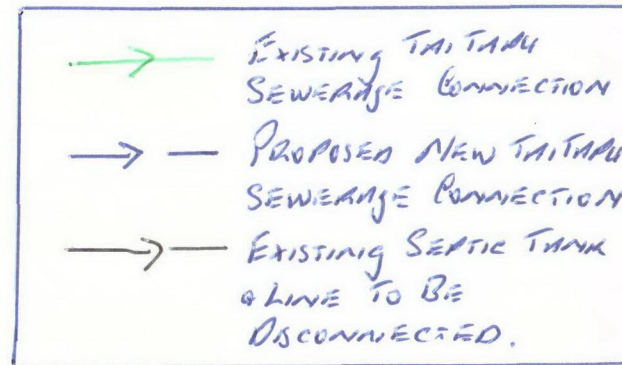 EXISTING TAITAPU
SEWERAGE CONNECTION
PROPOSED NEW TAITAPU
SEWERAGE CONNECTION
EXISTING SEPTIC TANK
& LINE TO BE
DISCONNECTED.